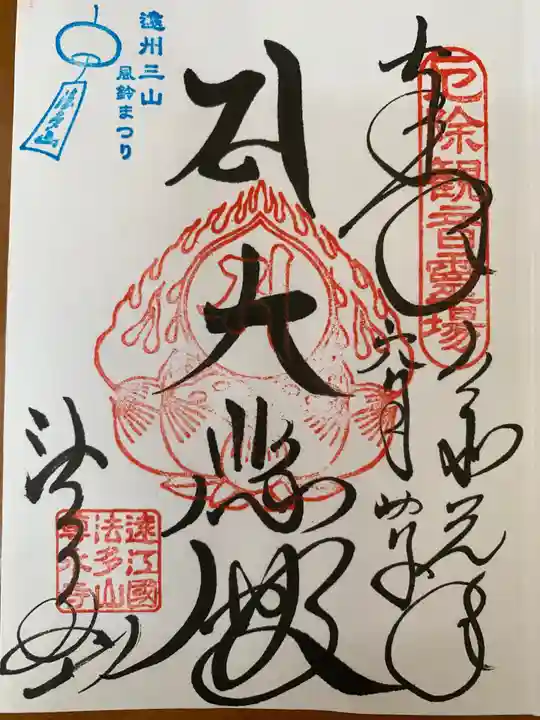 厄除観音霊場
奉拝
令和元年
六月
大悲殿
法多山
遠州三山
風鈴まつり
法多山
遠江國
法多山
尊永寺